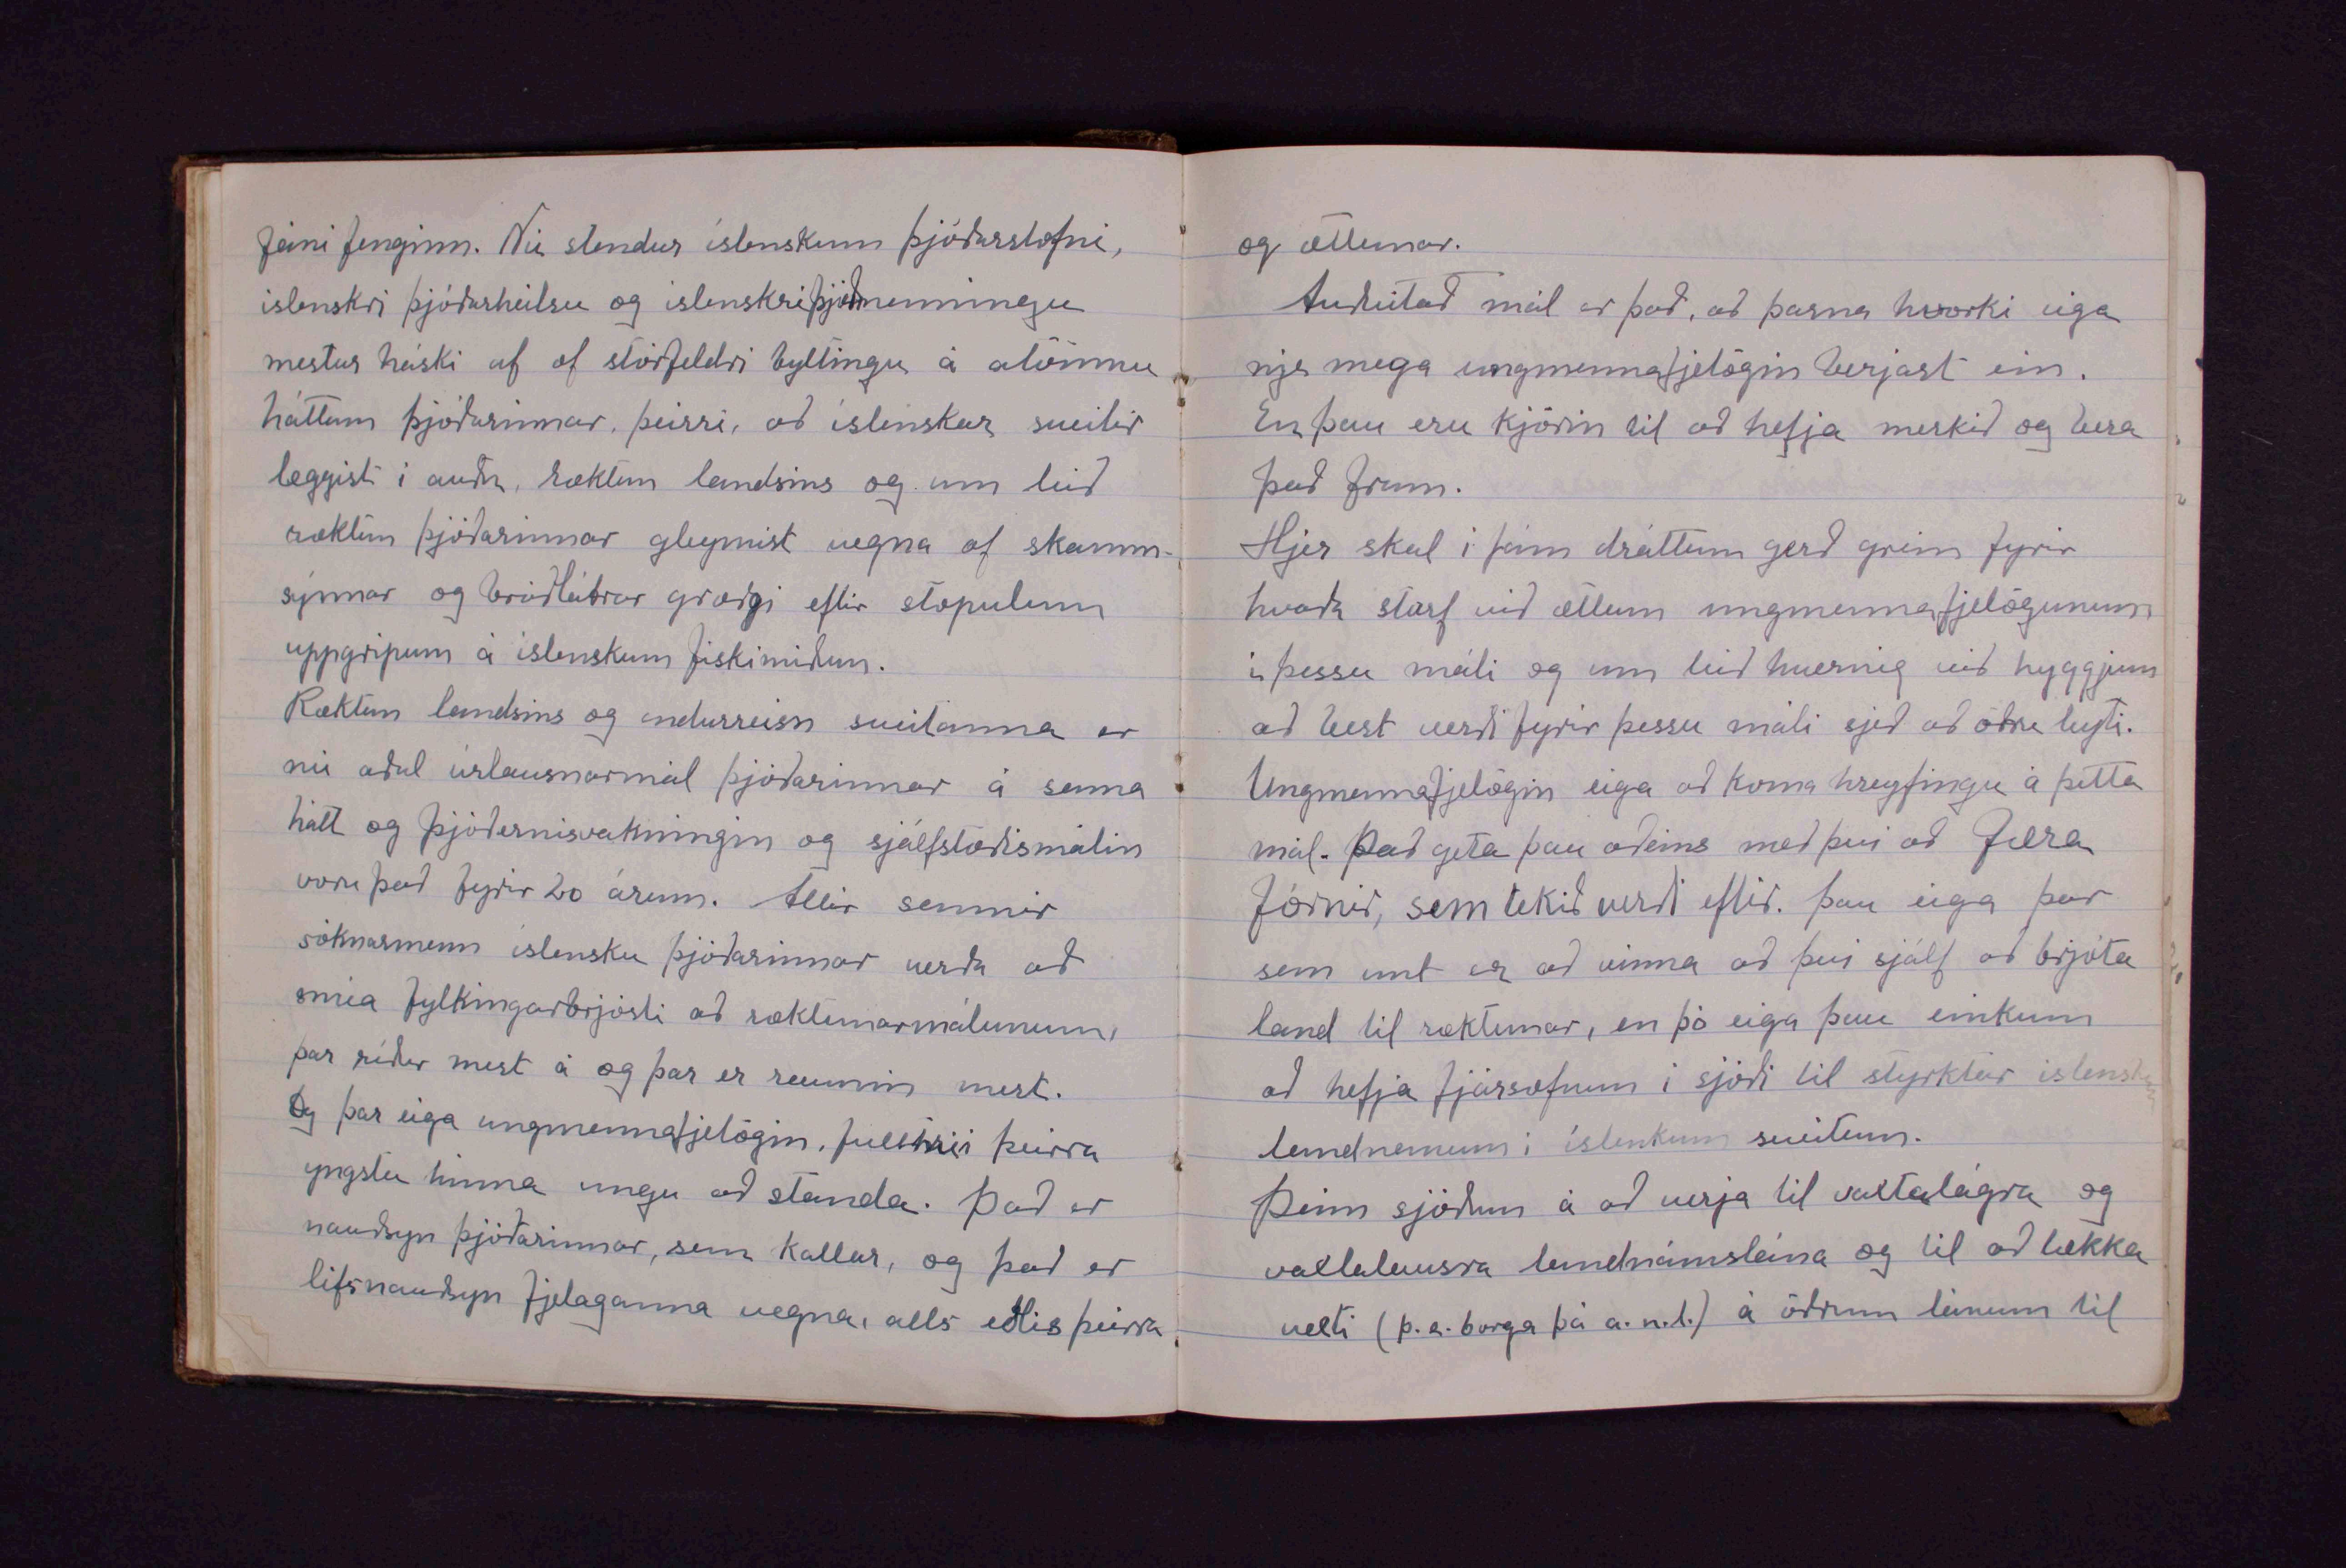 fáni fenginn. Nú stendur íslenskum þjóðarstofni,
íslenskri þjóðarheilsu og íslenskri þjóðmenningu
mestur háski af of stórfeldri byltingu á atvinnu
háttum þjóðarinnar, þeirri, að íslenskar sveitir
leggist í auðn, ræktun landsins og um leið
ræktun þjóðarinnar gleymist vegna of skamm-
sýnnar og bráðlátrar græðgi eftir stopulum
uppgripum á íslenskum fiskimiðum.
Ræktun landsins og endurreisn sveitanna er
nú aðal úrlausnarmál þjóðarinnar á sama
hátt og þjóðernisvakningin og sjálfstæðismálin
voru það fyrir 20 árum. Allir sannir
söknarmenn íslensku þjóðarinnar verða að
snúa fylkingarbrjósti að ræktunarmálunum,
þar ríður mest á og þar er raunin mest.
Og þar eiga ungmennafjelögin, fulltrúi þeirra
yngstu hinna ungu að standa. Það er
nauðsyn þjóðarinnar, sem kallar, og það er
lífsnauðsyn fjelaganna vegna, alls eðlis þeirra
og ættunar.
Auðvitað mál er það, að þarna hvorki eiga
nje mega ungmennafjelögin berjast ein.
En þau eru kjörin til að hefja merkið og bera
það fram.
Hjer skal í fám dráttum gerð grein fyrir
hvaða starf við ætlum ungmennafjelögunum
í þessu máli og um leið hvernig við hyggjum
að best verði fyrir þessu máli sjeð að öðru leyti.
Ungmennafjelögin eiga að koma hreyfingu á þetta
mál. Það geta þau aðeins með því að færa
fórnir, sem tekið verði eftir. Þau eiga þar
sem unt er að vinna að því sjálf að brjóta
land til ræktunar, en þó eiga þau einkum
að hefja fjársöfnun í sjóði til styrktar íslensku
landnemum í íslenkum sveitum.
Þeim sjóðum á að verja til vaxtalágra og
vaxtalausra landnámslána og til að lækka
vexti (þ.e. borga þá a.n.l.) á öðrum lánum til